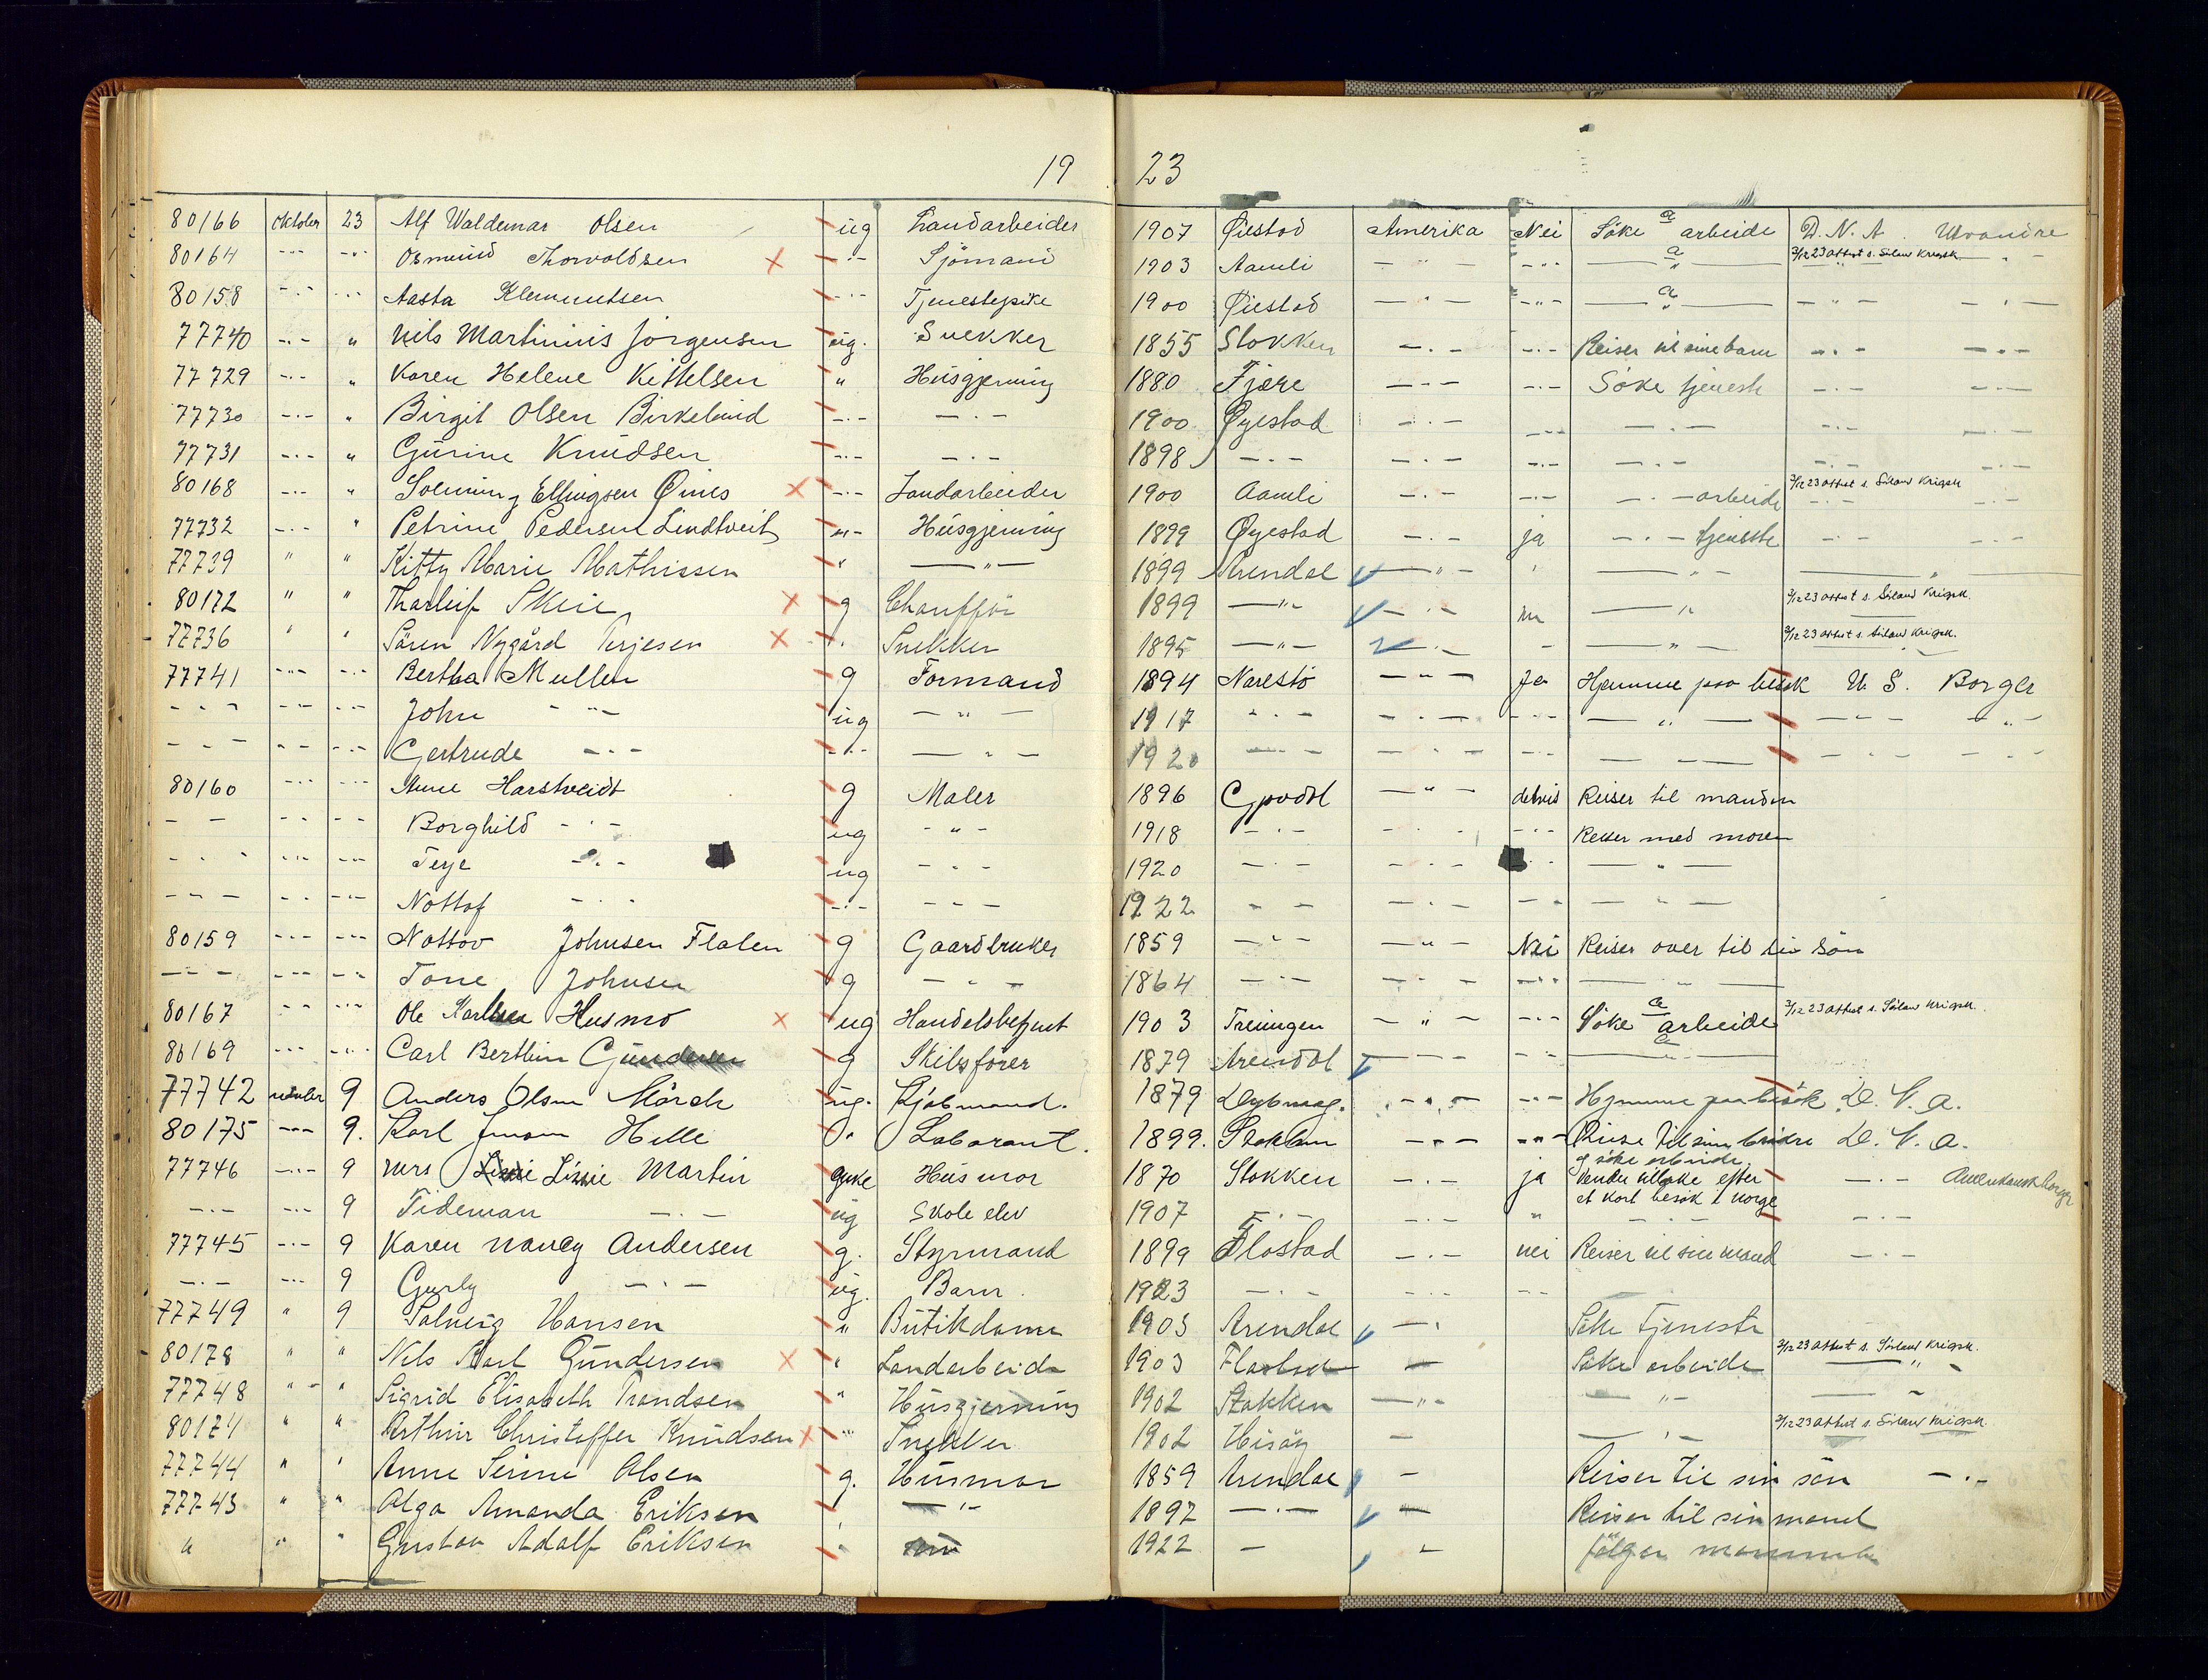 19 23
80166 Oktober 23 Alf Waldemar Olsen ug Landarbeider 1907 Øiestad Amerika Nei Søke a arbeide D.N.A. Uvandre
80164 -"- -"- Osmund Thorvaldsen × -"- Sjømand 1903 Aamli -"- -"- -"- a 3/12 23 attest s. Sörland Krigsk. -"-
80158 -"- -"- Aasta Klemmetsen -"- Tjenestepike 1900 Øiestad -"- -"- -"- a -"- -"-
77740 -"- " Nils Martinius Jörgensen ug. Snekker 1855 Stokken -"- -"- Reiser til sine barn -"- -"-
77729 -"- " Karen Helene Kittelsen " Husgjerning 1880 Fjære -"- -"- Söke tjeneste -"- -"-
77730 -"- " Birgit Olsen Birkelund -"- -"- 1900 Øyestad -"- -"- -"- -"- -"-
77731 -"- " Gurine Knudsen -"- -"- 1898 -"- -"- -"- -"- -"- -"-
80168 -"- " Solmung Ellingsen × -"- Landarbeider 1900 Aamli -"- -"- -"- arbeide 3/12 23 attest s. Sörland Krigsk -"-
77732 -"- " Petrine Pedersen Lindtveit -"- Husgjerning 1899 Øyestad -"- ja -"- tjeneste -"- -"-
77739 " " Kitty Marie Mathissen " -"- 1899 Arendal -"- " -"- -"-
80172 " " Tharleif Skeie × g Chaufför 1899 -"- -"- -"- 3/12 23 attest s. Sörland Krigsk.
77736 " " Sören Nygård Terjesen × " Snekker 1895 -"- -"- - -"- 3/12 23 attest s. Sörland Krigsk.
77741 -"- -"- Bertha Muller g Formand 1894 Narestö -"- Ja Hjemme paa besök U. S. Borger
-"- -"- -"- John -"- ug -"- 1917 -"- -"- -"- -"- -"- -"-
-"- -"- -"- Gertrude -"- -"- -"- 1920 -"- -"- -"- -"- -"- -"-
80160 -"- -"- Anne Harstveidt g Maler 1896 Gjøvdal -"- delvis Reiser til manden
-"- -"- -"- Borghild -"- ug -"- 1918 -"- -"- -"- Reiser med moren
-"- -"- -"- Terje -"- ug -"- 1920 -"- -"- -"- -"-
-"- -"- -"- Nottof -"- -"- -"- 1922 -"- -"- -"- -"-
80159 -"- -"- Nottov Johnsen Flaten g Gaardbruker 1859 -"- -"- Nei Reiser over til sin sön
-"- -"- -"- Tone Johnsen g -"- 1864 -"- -"- -"- -"-
80167 -"- -"- Ole Husmo × ug Handelsbetjent 1903 Treungen -"- -"- Søke a arbeide 3/12 23 attest s. Sörland Krigsk.
80169 -"- -"- Carl Berthin Gundersen g Skibsförer 1879 Arendal -"- -"- a -"-
77742 9 Anders Olsen Mörch ug. Kjøbmand. 1879 Dybvaag. -"- -"- Hjemme paa besök D. N. A.
80175 -"- 9. Karl Helle " Laborant. 1899. Stokken -"- -"- Reise til sin bródre D. N. A.
og söke arbeide
77746 -"- 9 Mrs Lizzie Martin enke Husmor 1870 Stokken -"- ja Vender tilbake efter -"- Amerikansk borger
et kort besök i norge
-"- -"- 9 Tideman -"- ug Skole elev 1907 -"- -"- " -"- -"-
77745 -"- 9 Karen Nancy Andersen g. Styrmand 1899 Flostad -"- nei Reiser til sin mand -"-
-"- -"- 9 Gurly -"- ug. Barn. 1923 -"- -"- -"-
77749 " 9 Solveig Hansen " Butikdame 1903 Arendal -"- Söke Tjeneste
80178 " " Nils Karl Gundersen × " Landarbeide 1903 Flostad -"- Söke arbeide 3/12 23 attest s. Sörland Krigsk.
77748 " " Sigrid Elisabeth Trondsen " Husgjerning 1902 Stokken -"- -"- -"-
80174 " " Arthur Christoffer Knudsen × -"- Snekker 1902 Hisöy - -"- 3/12 23 attest s. Sörland Krigsk.
77744 " " Anne Serine Olsen g. Husmor 1859 Arendal - Reiser til sin sön -"-
77743 " " Olga Amanda Eriksen " -"- 1897 -"- - Reiser til sin mand
" " " Gustav Adolf Eriksen " 1922 - - fölger